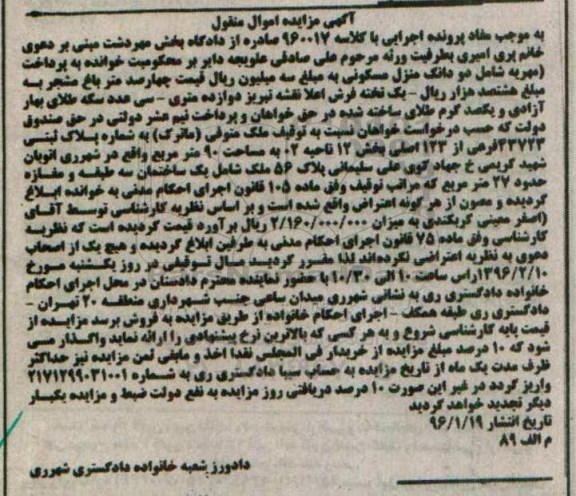 آگهی مزایده اموال منقول
به موجب مفاد پرونده اجرایی با کلاسه ۹۶۰۰۱۷ صادره از دادگاه بخش مهردشت مبنی بر دعوی
خانم پری امیری بطرفیت ورثه مرحوم علی صادقی علویجه دایر بر محکومیت خوانده به پرداخت
(مهریه شامل دو دانگ منزل مسکونی به مبلغ سه میلیون ریال قیمت چهارصد متر باغ مشجر به
مبلغ هشتصد هزار ریال – یک تخته فرش اعلا نقشه تبریز دوازده متری – سی عدد سکه طلای بهار
آزادی و یکصد گرم طلای ساخته شده در حق خواهان و پرداخت نیم عشر دولتی در حق صندوق
دولت که حسب درخواست خواهان نسبت به توقیف ملک متوفی (ماترک) به شماره پلاک ثبتی
۳۳۷۲۳فرعی از ۱۲۳ اصلی بخش ۱۲ ناحیه ۰۲ به مساحت ۹۰ متر مربع واقع در شهرری اتوبان
شهید کریمی خ جهاد کوی علی سلیمانی پلاک ۵۶ ملک شامل یک ساختمان سه طبقه و مغازه
حدود ۲۷ متر مربع که مراتب توقیف وفق ماده ۱۰۵ قانون اجرای احکام مدنی به خوانده ابلاغ
گردیده و مصون از هر گونه اعتراضی واقع شده است و بر اساس نظریه کارشناسی توسط آقای
(اصغر معینی کربکندی به میزان ۲/۱۶۰/۰۰۰/۰۰۰ ریال برآورد قیمت گردیده است که نظریه
کارشناسی وفق ماده ۷۵ قانون اجرای احکام مدنی به طرفین ابلاغ گردیده و هیچ یک از اصحاب
دعوی به نظریه اعتراضی نکرده‌اند لذا مقرر گردید مال توقیفی در روز یکشنبه مورخ
۱۳۹۶/۲/۱۰راس ساعت ۱۰ الی ۱۰/۳۰ با حضور نماینده محترم دادستان در محل اجرای احکام
خانواده دادگستری ری به نشانی شهرری میدان ساعی جنب شهرداری منطقه ۲۰ تهران –
دادگستری ری طبقه همکف – اجرای احکام خانواده از طریق مزایده به فروش برسد مزایده از
قیمت پایه کارشناسی شروع و به هر کسی که بالاترین نرخ پیشنهادی را ارائه نماید واگذار می
شود که ۱۰ درصد مبلغ مزایده از خریدار فی المجلس نقدا اخذ و مابقی ثمن مزایده نیز حداکثر
ظرف مدت یک ماه از تاریخ مزایده به حساب سیبا دادگستری ری به شماره ۲۱۷۱۲۹۹۰۳۱۰۰۱
واریز گردد در غیر این صورت ۱۰ درصد دریافتی روز مزایده به نفع دولت ضبط و مزایده یکبار
دیگر تجدید خواهد گردید
تاریخ انتشار ۹۶/۱/۱۹
م الف ۸۹
دادورز شعبه خانواده دادگستری شهرری